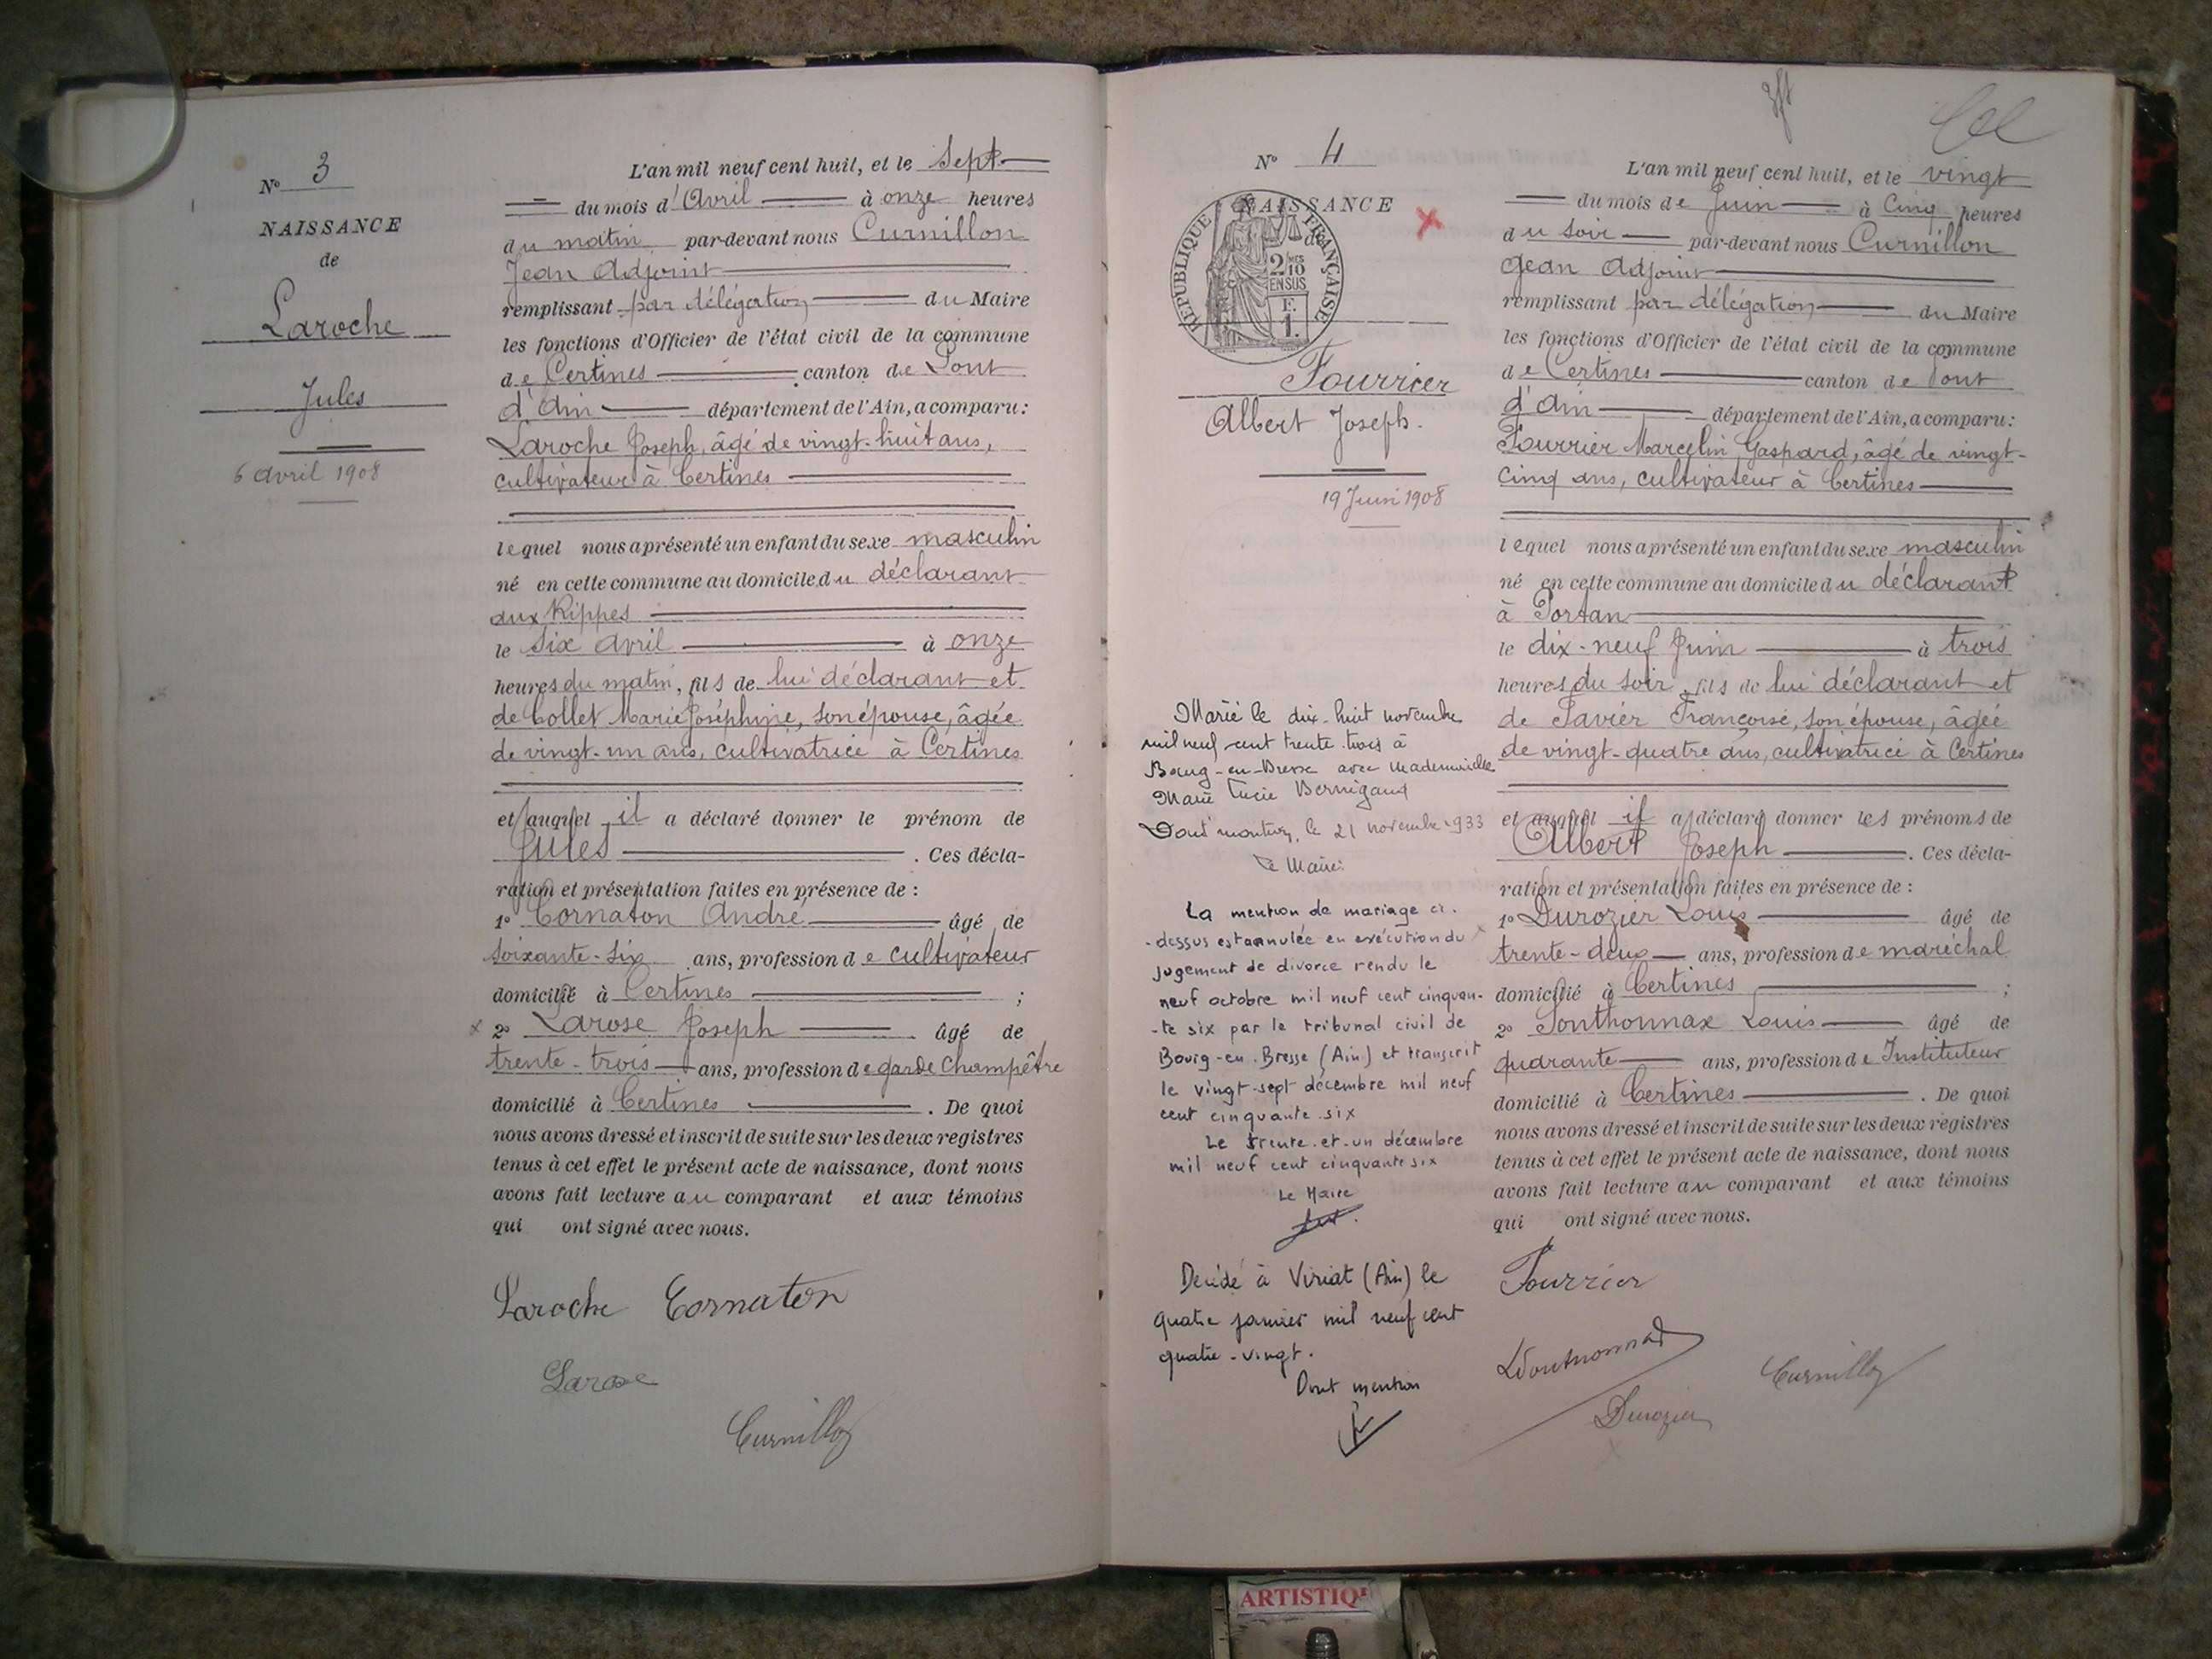 N° 3
NAISSANCE
de
Laroche
Jules
6 avril 1908
L'an mil neuf cent huit, et le sept
du mois d'Avril à onze heures
du matin par-devant nous Curnillon
Jean Adjoint
remplissant par délégation du Maire
les fonctions d'Officier de l'état civil de la commune
de Certines canton de Pont
d'Ain département de l'Ain, a comparu:
Laroche Joseph, âgé de vingt-huit ans,
cultivateur à Certines
lequel nous a présenté un enfant du sexe masculin
né en cette commune au domicile du déclarant
aux Rippes
le six avril à onze
heures du matin, fils de lui déclarant et
de Collet Marie Joséphine, son épouse, âgée
de vingt-un ans, cultivatrice à Certines
et auquel il a déclaré donner le prénom de
Jules . Ces décla-
ration et présentation faites en présence de :
1° Cornaton André âgé de
soixante-six ans, profession de cultivateur
domicilié à Certines ;
2° Larose Joseph âgé de
trente-trois ans, profession de garde Champêtre
domicilié à Certines . De quoi
nous avons dressé et inscrit de suite sur les deux registres
tenus à cet effet le présent acte de naissance, dont nous
avons fait lecture au comparant et aux témoins
qui ont signé avec nous.
Laroche Cornaton
Larose
Curnillon
N° 4
NAISSANCE
de
REPUBLIQUE FRANÇAISE
2/10
EN SUS
F.
1.
Fourrier
Albert Joseph.
19 Juin 1908
Marié le dix-huit novembre
mil neuf cent trente-trois à
Bourg-en-Bresse avec Mademoiselle
Marie Lucie Bernigaud
Dont mention, le 21 novembre 1933
Le Maire:
La mention de mariage ci-
-dessus est annulée en exécution du
jugement de divorce rendu le
neuf octobre mil neuf cent cinquan-
-te six par le tribunal civil de
Bourg-en-Bresse (Ain) et transcrit
le vingt-sept décembre mil neuf
cent cinquante-six
Le trente-et-un décembre
mil neuf cent cinquante six
Le Maire
Décédé à Viriat (Ain) le
quatre janvier mil neuf cent
quatre-vingt.
Dont mention
L'an mil neuf cent huit, et le vingt
du mois de Juin à Cinq heures
du soir par-devant nous Curnillon
Jean Adjoint
remplissant par délégation du Maire
les fonctions d'Officier de l'état civil de la commune
de Certines canton de Pont
d'Ain département de l'Ain, a comparu:
Fourrier Marcelin Gaspard, âgé de vingt-
cinq ans, cultivateur à Certines
lequel nous a présenté un enfant du sexe masculin
né en cette commune au domicile du déclarant
à
le dix-neuf Juin à trois
heures du soir, fils de lui déclarant et
de Favier Françoise, son épouse, âgée
de vingt-quatre ans, cultivatrice à Certines
et auquel il a déclaré donner les prénoms de
Albert Joseph . Ces décla-
ration et présentation faites en présence de :
1° Durozier Louis âgé de
trente-deux ans, profession de maréchal
domicilié à Certines ;
2° Ponthonnax Louis âgé de
quarante ans, profession de Instituteur
domicilié à Certines . De quoi
nous avons dressé et inscrit de suite sur les deux registres
tenus à cet effet le présent acte de naissance, dont nous
avons fait lecture au comparant et aux témoins
qui ont signé avec nous.
Fourrier
Curnillon
Durozier
ARTISTIQ